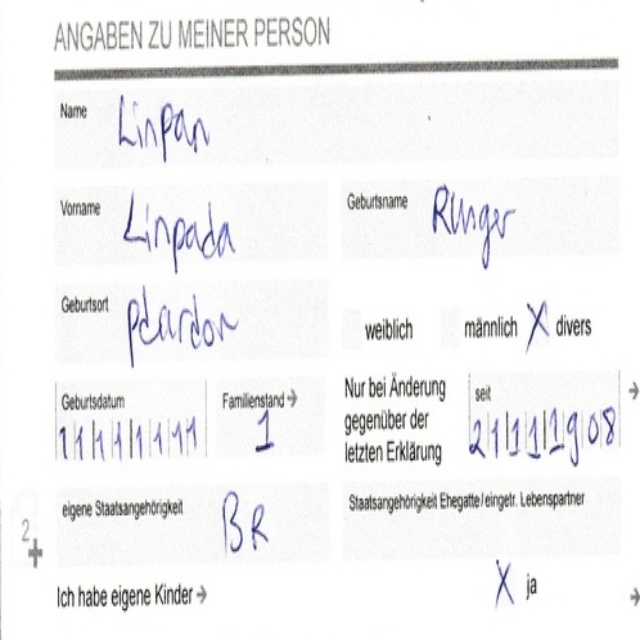 ANGABEN ZU MEINER PERSON
Name Linpan
Vorname Linpada Geburtsname Runger
Geburtsort pdardon weiblich männlich X divers
Geburtsdatum 11111111 Familienstand → 1 Nur bei Änderung gegenüber der letzten Erklärung seit 21111908 →
eigene Staatsangehörigkeit BR Staatsangehörigkeit Ehegatte/eingetr. Lebenspartner
2
Ich habe eigene Kinder → X ja →